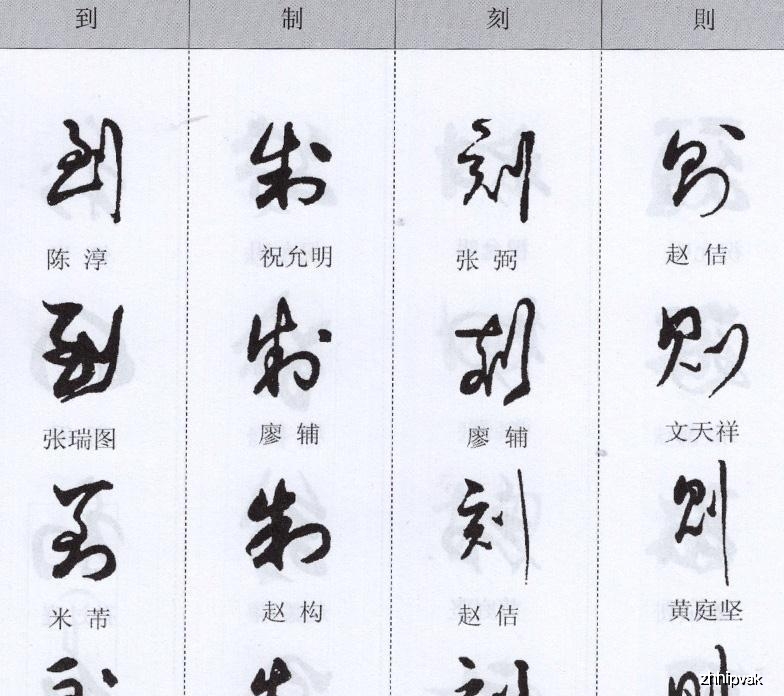 到 制 刻 則
到 制 刻 則
陈 淳 祝允明 张 弼 赵 佶
到 制 刻 則
张瑞图 廖 辅 廖 辅 文天祥
到 制 刻 則
米 芾 赵 构 赵 佶 黄庭坚
zhnlpvak